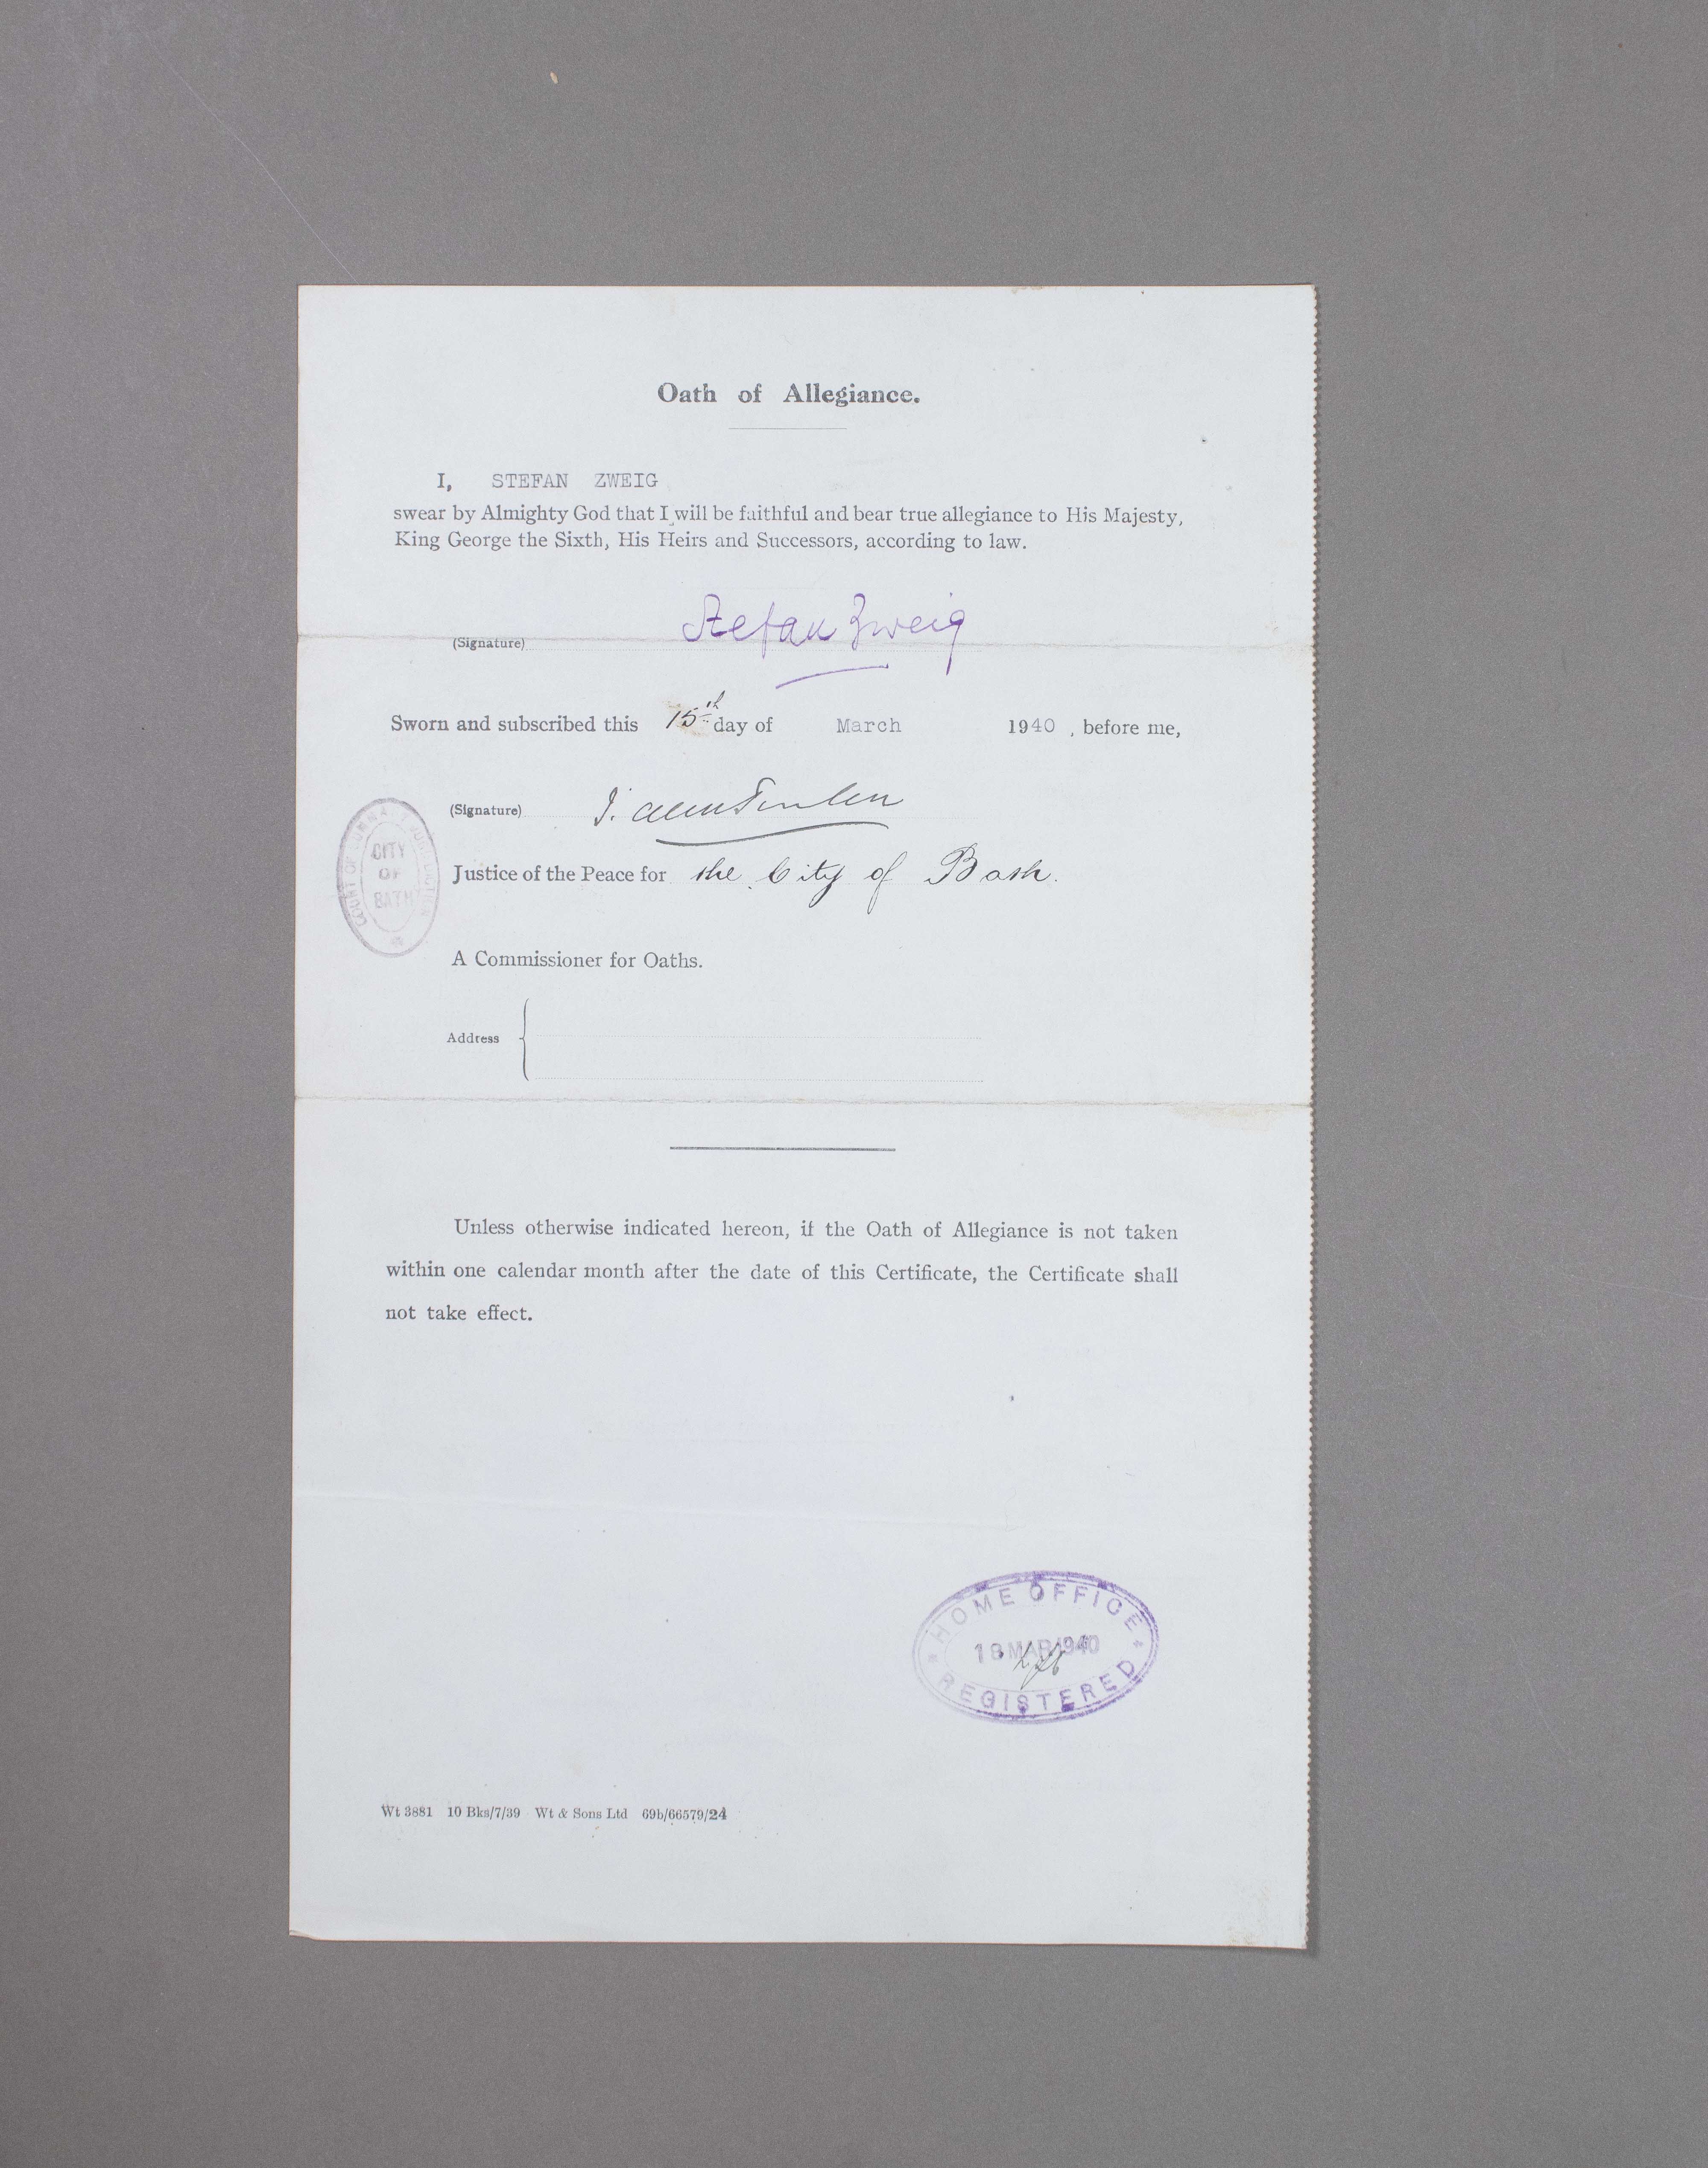 Oath of Allegiance.
I, STEFAN ZWEIG
swear by Almighty God that I will be faithful and bear true allegiance to His Majesty,
King George the Sixth, His Heirs and Successors, according to law.
(Signature) Stefan Zweig
Sworn and subscribed this 15th day of March 1940 , before me,
(Signature)
COURT OF SUMMARY JURISDICTION
CITY
OF
BATH
Justice of the Peace for the City of Bath.
A Commissioner for Oaths.
Address
Unless otherwise indicated hereon, if the Oath of Allegiance is not taken
within one calendar month after the date of this Certificate, the Certificate shall
not take effect.
HOME OFFICE
18 MAR 1940
REGISTERED
Wt 3881 10 Bks/7/39 Wt & Sons Ltd 69b/66579/24